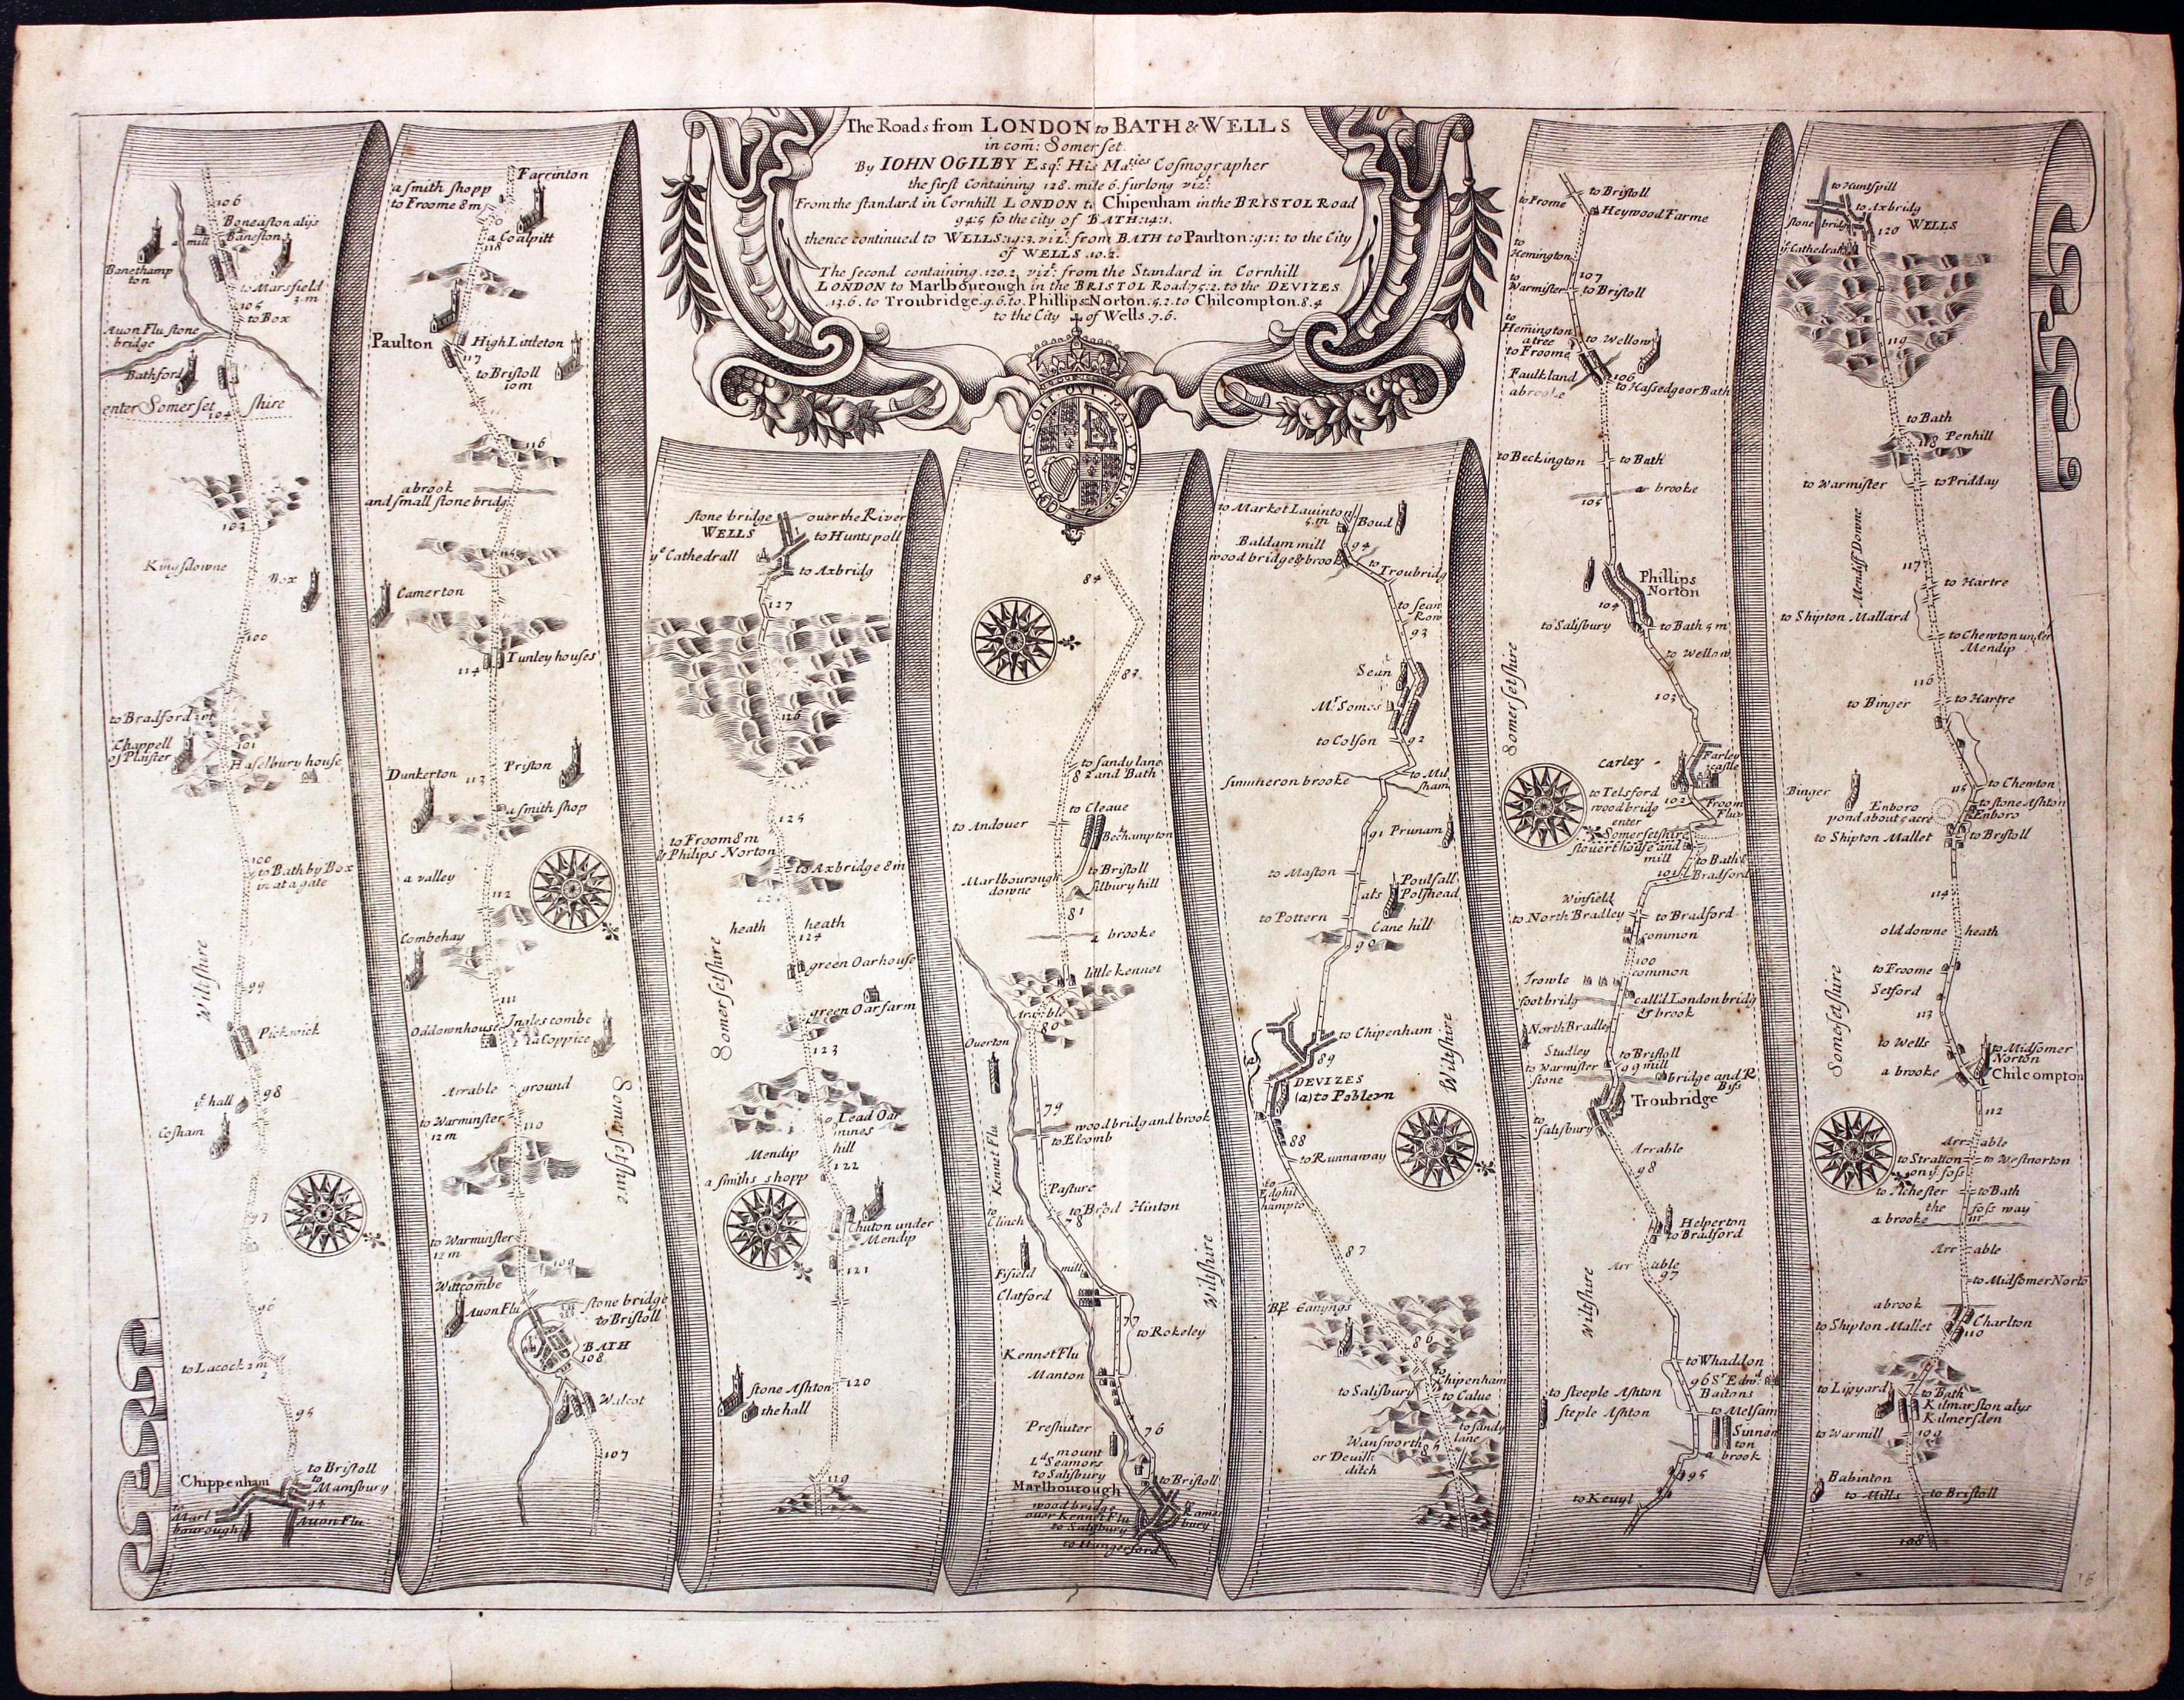 The Roads from LONDON to BATH & WELLS
in com: Somerset.
By IOHN OGILBY Esqr. His Maties Cosmographer
the first Containing 128. mile 6. furlong vizt.
From the standard in Cornhill LONDON to Chipenham in the BRISTOL Road
94:5 to the city of BATH:14:1.
thence continued to WELLS:19:3. vizt. from BATH to Paulton:9:1: to the City
of WELLS .10.2.
The second containing .120.2. vizt. from the Standard in Cornhill
LONDON to Marlbourough in the BRISTOL Road 75.2. to the DEVIZES
.13.6. to Troubridge.9.6.to. Phillips Norton.5.2.to Chilcompton.8.4
to the City of Wells .7.6.
HONI SOIT QUI MAL Y PENSE
106
Boneaston alys
Baneston
a mill
Banethamp
ton
to Marsfield
3.m
105
to Box
Auon Flu stone
bridge
Bathford
enter Somerset shire
104
103
Kingsdowne
Box
100
to Bradford
Chappell
of Plaister
101
Haselbury house
100
to Bath by Box
in at a gate
Wiltshire
99
Pickwick
98
ye hall
Cosham
97
96
to Lacock 2m
95
Chippenham
to Bristoll
to
Mamsbury
94
to
Marl
bourough
Auon Flu.
Farrinton
a smith shopp
to Froome 8 m
a Coalpitt
118
Paulton
High Littleton
117
to Bristoll
10m
116
a brook
and small stone bridg
Camerton
114
Tunley houses
Dunkerton
113
Priston
a smith shop
a valley
112
Combehay
111
Oddownhouse
Ingles combe
a Coppice
Arrable ground
to Warminster
12 m
110
Somersetshire
to Warminster
12 m
109
Witcombe
Auon Flu
stone bridge
to Bristoll
BATH
108
Walcot
107
stone bridge over the River
WELLS
to Huntspoll
ye Cathedrall
to Axbridg
127
126
125
to Froom 8 m
& Philips Norton
to Axbridge 8 m
heath heath
124
green Oar house
Somersetshire
green Oar farm
123
Lead Oar
mines
hill
Mendip
122
a smiths shopp
Chuton under
Mendip
121
stone Ashton
the hall
120
119
84
83
to sandy lane
82 and Bath
to Cleaue
to Andouer
Bechampton
to Bristoll
Marlbourough
downe
Silbury hill
81
a brooke
little kennet
Arrable
80
Ouerton
79
wood bridg and brook
to Elcomb
Kennet Flu
Pasture
to Brod Hinton
78
to
Clinch
Fifield
mill
Clatford
77
to Rokeley
Wiltshire
Kennet Flu
Manton
Preshuter
76
mount
Ld Seamors
to Salisbury
to Bristoll
Marlbourough
wood bridge
over Kennet Flu
to Salisbury
to Rams
bury
to Hungerford
to Market Lauinton
5.m
Boud
Baldam mill
94
wood bridge & brook
to Troubridg
to sean
Row
93
Sean
Mr Somes
to Colson
92
Summeron brooke
to Mil
sham
91
Prunam
to Maston
als
Poulsall
Polshead
to Pottern
Cane hill
90
to Chipenham
89
(a)
DEVIZES
(a) to Pobleon
Wiltshire
88
to Runnaway
to
Edghil
hampto
87
Bp. Canyngs
86
to Salisbury
Chipenham
to Calue
to sandy
lane
Wansworth
85
or Deuills
ditch
to Bristoll
to Frome
Heywood Farme
to
Hemington
107
to
Warmister
to Bristoll
to
Hemington
a tree
to Wellow
to Froome
Faulkland
106
to Hassedge or Bath
a brooke
to Beckington
to Bath
a brooke
105
Phillips
Norton
104
to Salisbury
to Bath 5 m
to Wellow
Somersetshire
103
Carley
Farley
castle
to Telsford
wood bridg
102
Froom
Fluv
enter
Somersetshire
stouert house and
mill
to Bath &
Bradford
101
Winfield
to North Bradley
to Bradford
common
100
common
Trowle
foot bridg
call'd London bridg
& brook
North Bradley
Studley
to Bristoll
to Warmister
99 mill
stone
bridge and R
Biss
Troubridge
to
Salisbury
Arrable
98
Helperton
to Bradford
Arr able
97
Wiltshire
to Whaddon
96 St Edw.d
Baitons
to steeple Ashton
Steple Ashton
to Melsam
Sinnon
ton
a brook
95
to Keuyl
to Huntspill
to Axbridg
stone bridg
120
WELLS
ye Cathedrall
119
to Bath
118
Penhill
to Warmister
to Pridday
Mendiff Downe
117
to Hartre
to Shipton Mallard
to Chewton under
Mendip
116
to Binger
to Hartre
Binger
to Chewton
115
to stone Ashton
Enboro
pond about 5 acre
Enboro
to Shipton Mallet
to Bristoll
114
old downe heath
to Froome
Setford
113
Somersetshire
to Wells
to Midsomer
Norton
a brooke
Chilcompton
112
Arr able
to Stratton
on ye foss
to Westnorton
to Ilchester
to Bath
the foss way
a brooke
111
Arr able
to Midsomer Norto
a brook
to Shipton Mallet
Charlton
110
to Lipyard
to Bath
Kilmarston alys
Kilmersden
to Warmill
109
Babinton
to Mills
to Bristoll
108